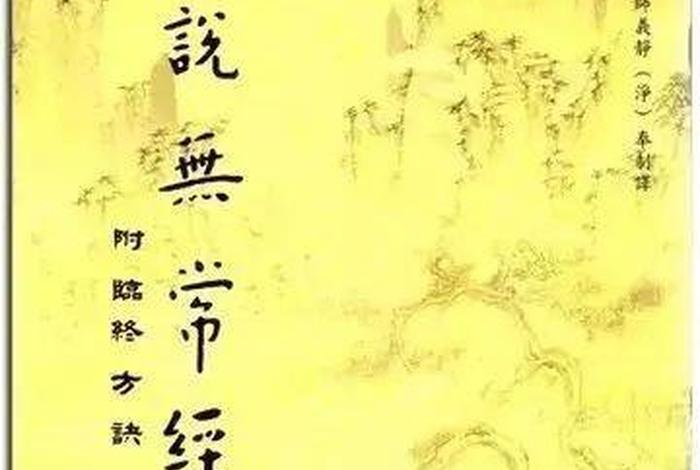 師義靜（淨）奉制譯
說無常經
附臨終方訣